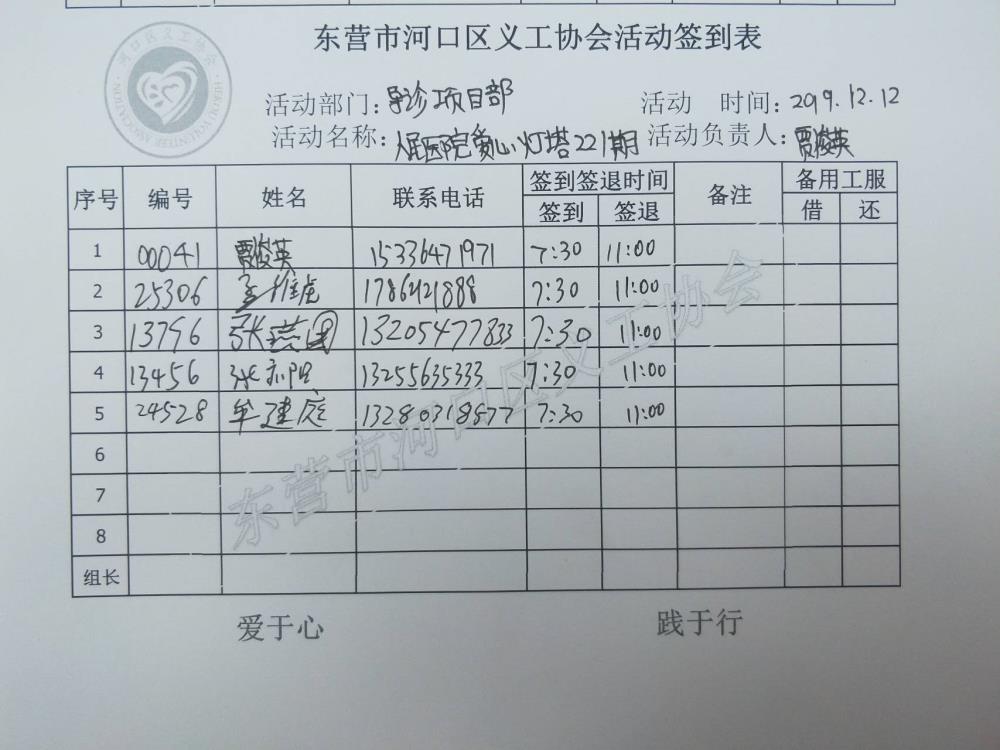 东营市河口区义工协会活动签到表
活动部门：导诊项目部 活动 时间：2019.12.12
活动名称：人民医院爱心灯塔221期 活动负责人：贾俊英
序号 编号 姓名 联系电话 签到签退时间 备注 备用工服
签到 签退 借 还
1 00041 贾俊英 15336471971 7:30 11:00
2 25306 1786421888 7:30 11:00
3 13796 张燕国 13205477833 7:30 11:00
4 13456 张亦阳 13255635333 7:30 11:00
5 24528 牟建庭 13280318577 7:30 11:00
6
7
8
组长
爱于心 践于行
东营市河口区义工协会
河口区义工协会
HEKOU VOLUNTEER ASSOCIATION